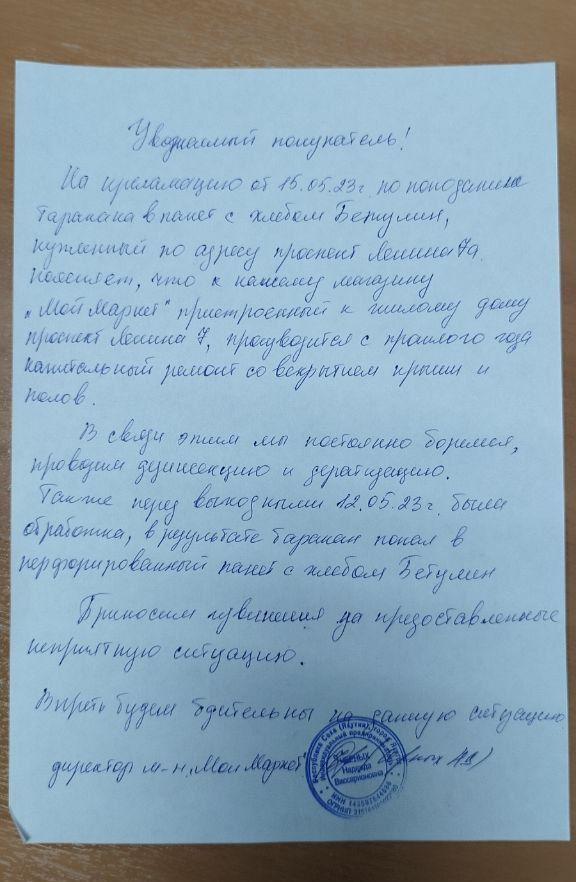 Уважаемый покупатель!
На крекламацию от 15.05.23г. по попадании
таракана в пакет с хлебом Бетулин,
купленный по адресу проспект Ленина 7а.
Поясняем, что к нашему магазину
„Мой Маркет" пристроенный к жилому дому
проспект Ленина 7, производится с прошлого года
капитальный ремонт со вскрытием крыши и
полов.
В связи этим мы постоянно боремся,
проводим дезинсекцию и дератизацию.
Также перед выходными 12.05.23г. была
обработка, в результате таракан попал в
перфорированный пакет с хлебом Бетулин
Приносим извинения за предоставленные
неприятную ситуацию.
Впредь будем бдительны на данную ситуацию
директор м-н „Мой Маркет"
Республика Саха (Якутия), город
Индивидуальный предприниматель
Виссарионовна
ИНН